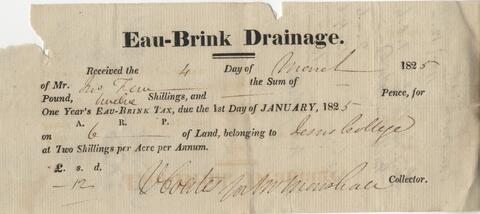 Eau-Brink Drainage.
Received the 4 Day of March 1825
of Mr. the Sum of
Pound, twelve Shillings, and Pence, for
One Year's EAU-BRINK TAX, due the 1st Day of JANUARY, 1825
A. R. P.
on 6 of Land, belonging to Jesus College
at Two Shillings per Acre per Annum.
£. s. d.
— 12 for Collector.